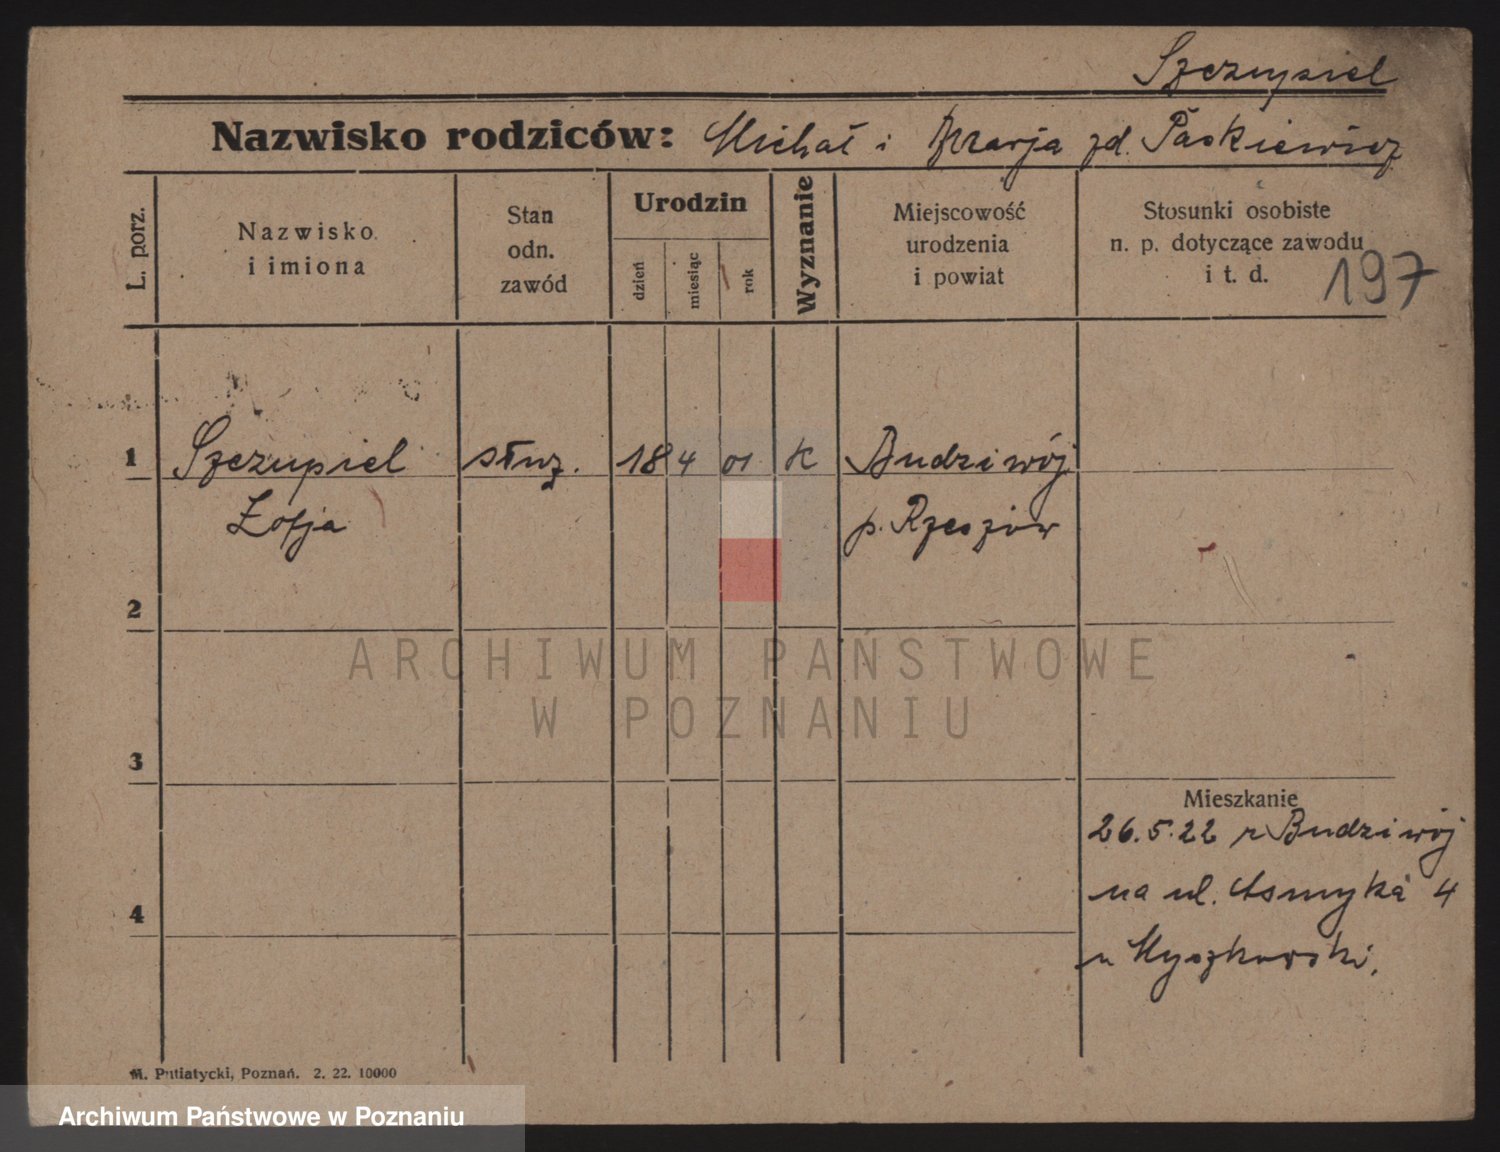 Szczupiel
Nazwisko rodziców: Michał i Marja zd. Paśkiewicz
L. porz.
Nazwisko i imiona
Stan odn. zawód
Urodzin
dzień
miesiąc
rok
Wyznanie
Miejscowość urodzenia i powiat
Stosunki osobiste
n. p. dotyczące zawodu
i t. d.
197
1 Szczupiel służ. 18 4 01 K Budziwój
Zofja p. Rzeszów
2
ARCHIWUM PAŃSTWOWE
W POZNANIU
3
Mieszkanie
26.5.22 z Budziwój
4 na ul. 4
u Myszkowski.
M. Putiatycki, Poznań. 2. 22. 10000
Archiwum Państwowe w Poznaniu